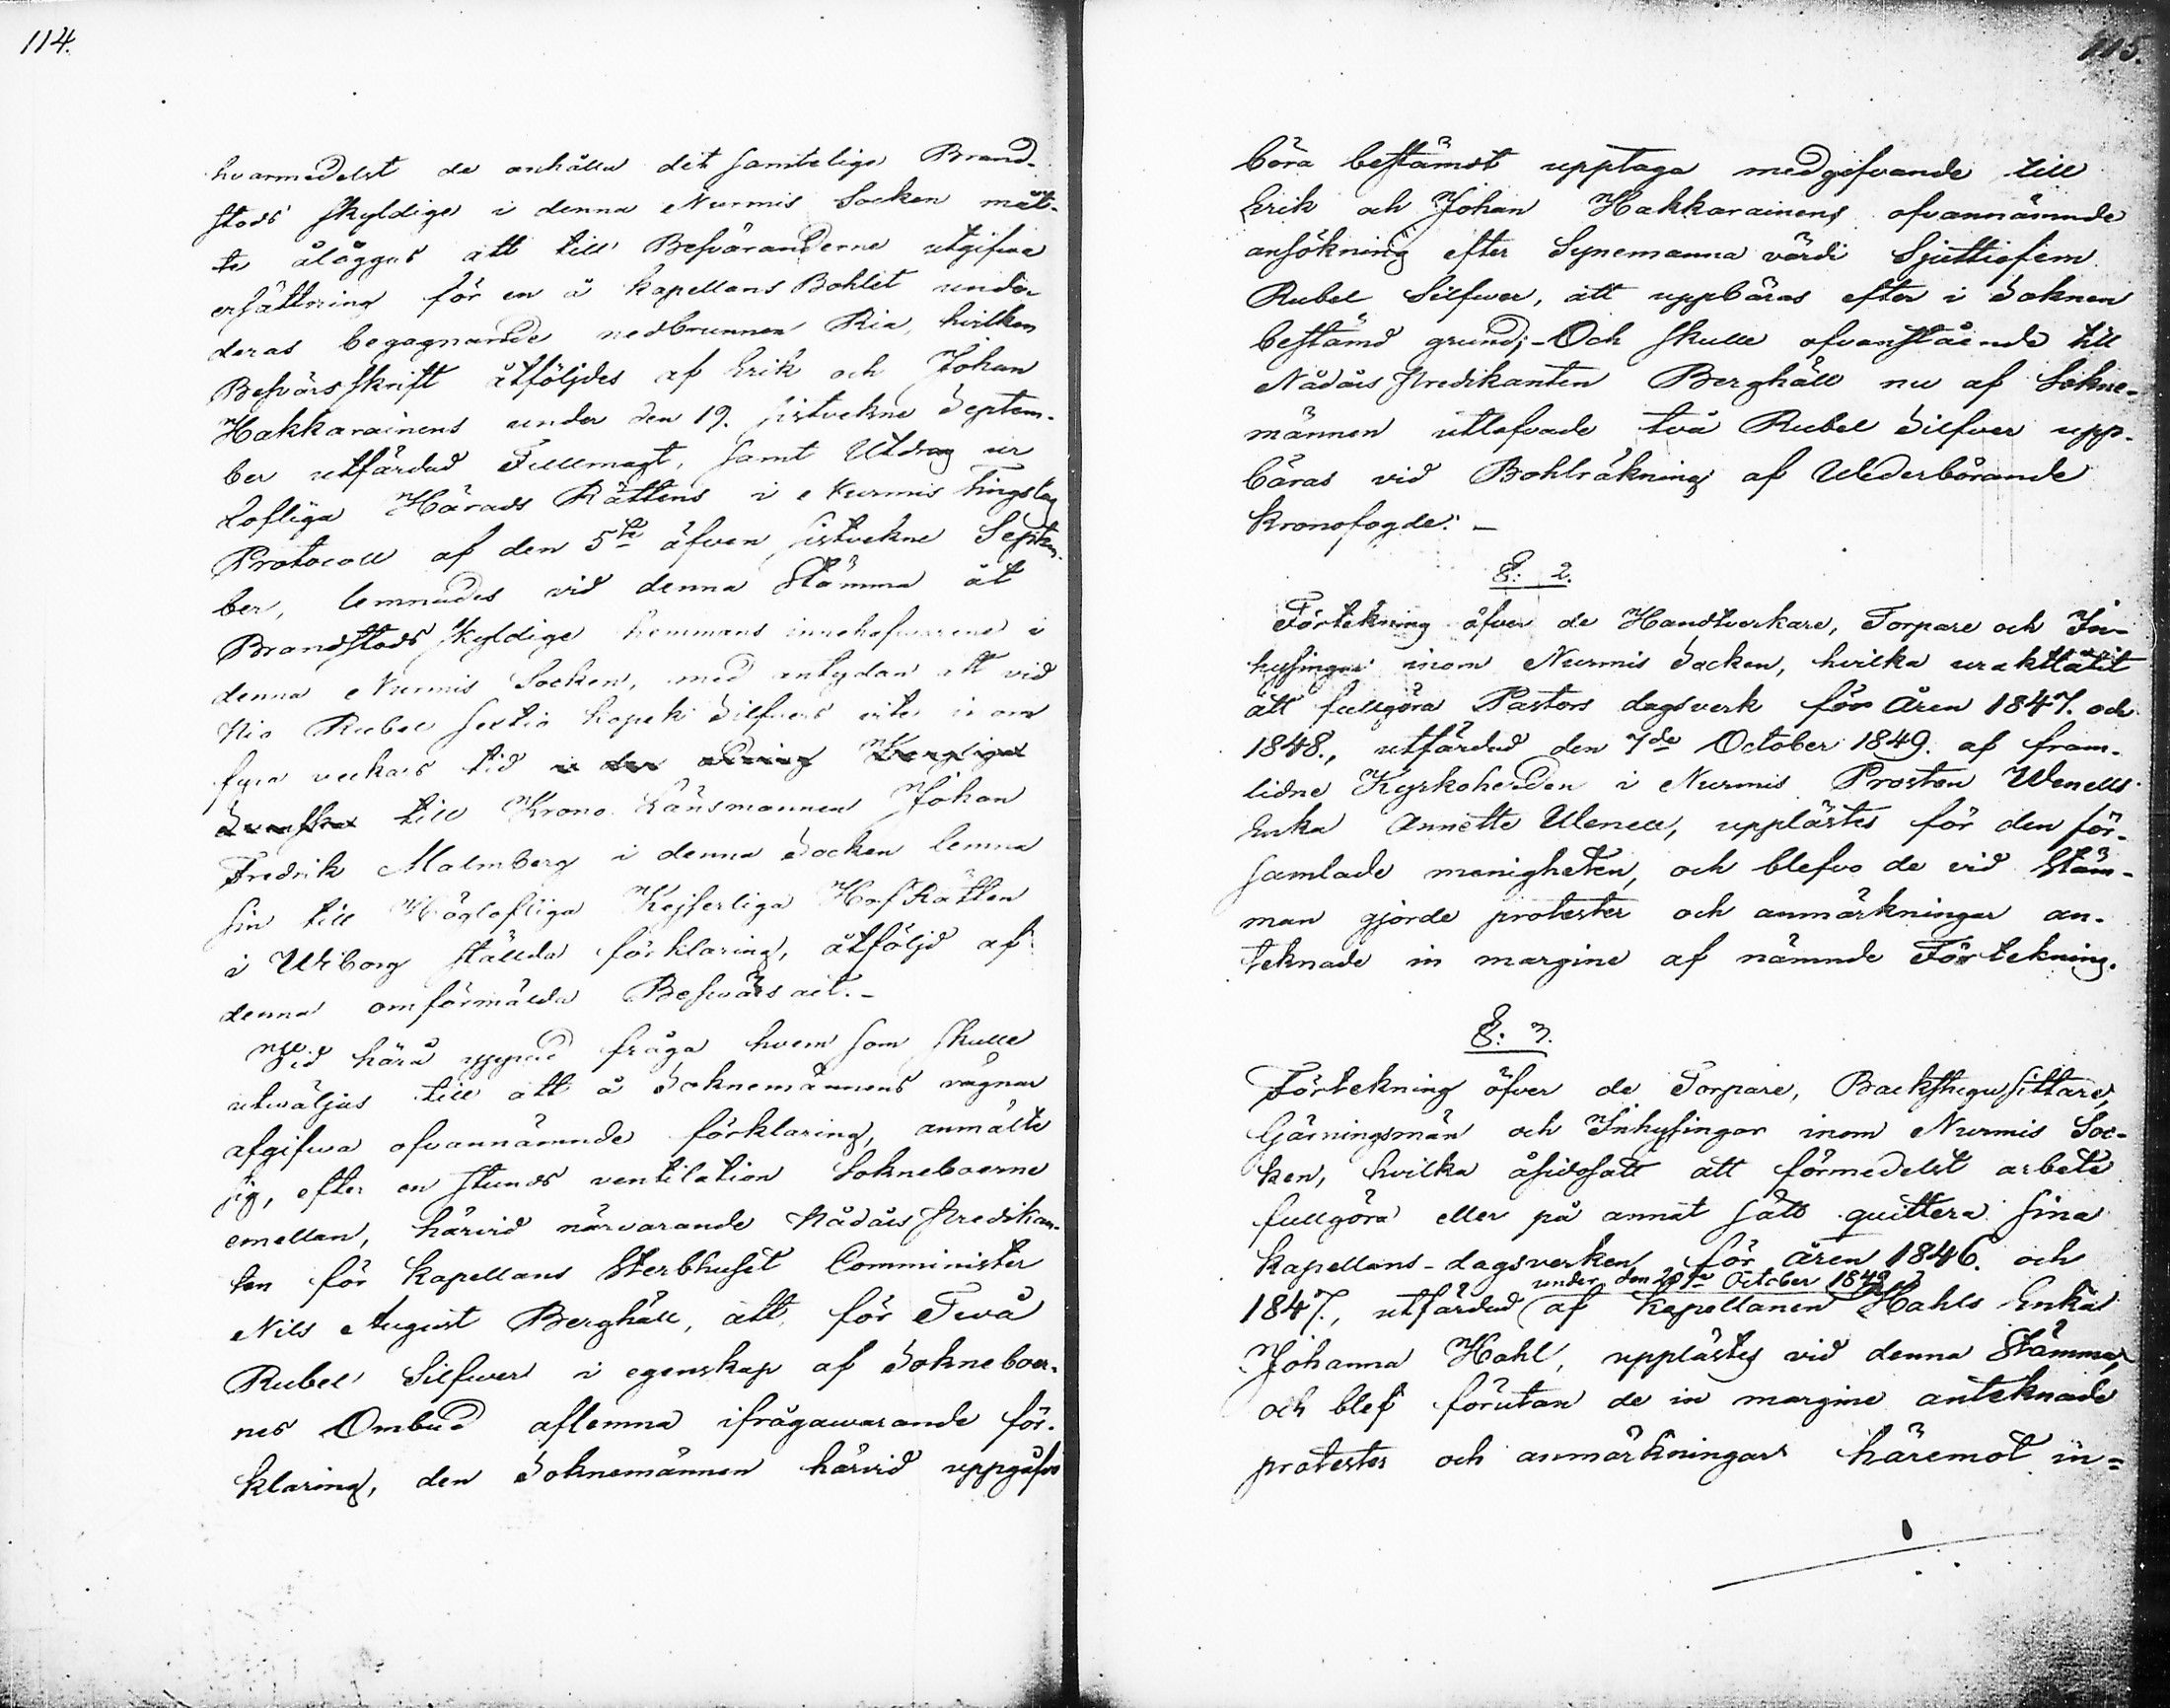 114.
hvarmedelst de anhålla det samtelige Brand-
stods skyldige i denna Nurmis Socken måt-
te åläggas att till Besväranderne utgifva
ersättning för en å Kapellans Bohlet under
deras begagnande nedbrunnen Ria, hvilken
Besvärsskrift åtföljdes af Erik och Johan
Hakkarainens under den 19. sistvekne Septem-
ber utfärdad Fullmagt, samt Utdrag ur
Lofliga Härads Rättens i Nurmis Tingslag
Protocoll af den 5te äfven sistvekne Septem-
ber, lemnades vid denna Stämma åt
Brandstods skyldige hemmans innehafvarene i
denna Nurmis Socken, med antydan att vid
Nio Rubel sextio kopek Silfvers vite inom
fyra veckors tid
till Krono Länsmannen Johan
Fredrik Malmberg i denna Socken lemna
sin till Höglofliga Kejserliga Hof Rätten
i Wiborg ställda förklaring, åtföljd af
denna omförmälda Besvärs act. -
Vid härå yppad fråga hvem som skulle
utwäljas till att å Soknemännens vägnar
afgifwa ofvannämnde förklaring, anmälte
sig, efter en stunds ventilation Sokneboerne
emellan, härvid närvarande Nådårs Predikan-
ten för Kapellans Sterbhuset Comminister
Nils August Berghäll, att för Två
Rubel Silfver i egenskap af Sokneboer-
nes Ombud aflemna ifrågawarande för-
klaring, den Soknemännen härvid uppgåfvo
115.
böra bestämdt upptaga medgifvande till
Erik och Johan Hakkarainens ofvannämnde
ansökning efter Synemanna värde Sjuttiofem
Rubel Silfver, att uppbäras efter i Soknen
bestämd grund; - Och skulle ofvanstående till
Nådårs Predikanten Berghäll nu af Sokne-
männen utlofvade två Rubel Silfver upp-
bäras vid Bohlräkning af Wederbörande
Kronofogde. -
§: 2.
Förtekning öfver de Handtverkare, Torpare och In-
hysingar inom Nurmis Socken, hvilka uraktlåtit
att fullgöra Pastors dagsverk för Åren 1847. och
1848., utfärdad den 7de October 1849. af fram-
lidne Kyrkoherden i Nurmis Prosten Wenells
Enka Annette Wenell, upplästes för den för-
samlade menigheten, och blefvo de vid Stäm-
man gjorde protester och anmärkningar an-
teknade in margine af nämnde Förtekning.
§: 3.
Förtekning öfver de Torpare, Backstugusittare,
Gärningsmän och Inhysingar inom Nurmis Soc-
ken, hvilka åsidosatt att förmedelst arbete
fullgöra eller på annat sätt quittera sina
Kapellans-dagsverken för åren 1846. och
under den 20de October 1849
1847., utfärdad af Kapellanen Hahls Enka
Johanna Hahl, upplästes vid denna Stämma,
och blef förutan de in margine anteknade
protester och anmärkningar häremot in=